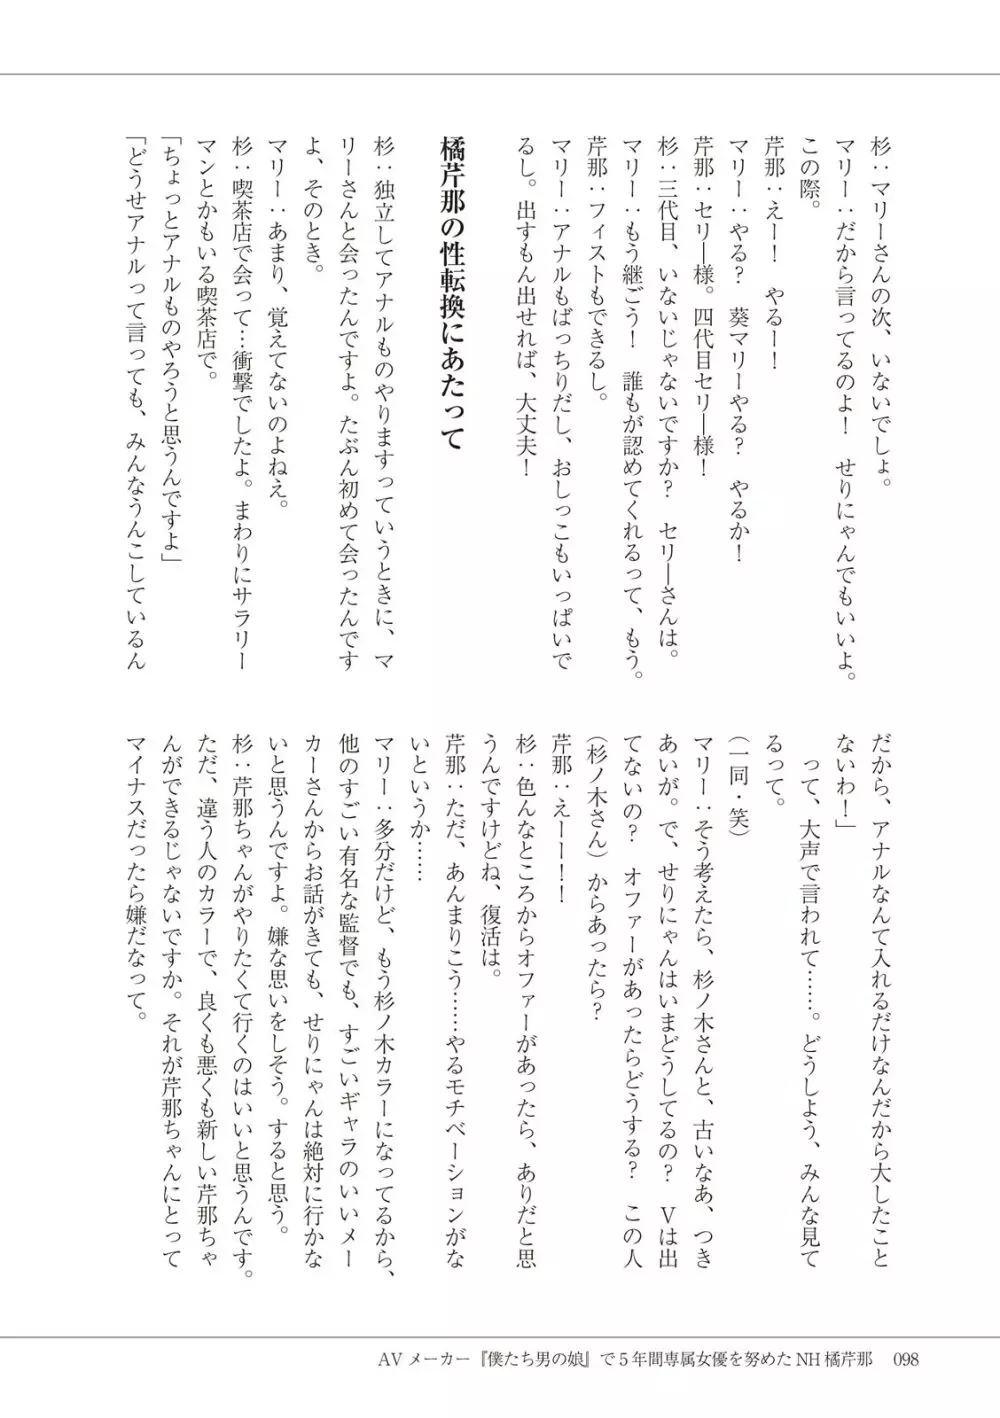 杉：マリーさんの次、いないでしょ。
マリー：だから言ってるのよ！　せりにゃんでもいいよ。
この際。
芹那：えー！　やるー！
マリー：やる？　葵マリーやる？　やるか！
芹那：セリ―様。四代目セリ―様！
杉：三代目、いないじゃないですか？　セリ―さんは。
マリー：もう継ごう！　誰もが認めてくれるって、もう。
芹那：フィストもできるし。
マリー：アナルもばっちりだし、おしっこもいっぱいで
るし。出すもん出せれば、大丈夫！
橘芹那の性転換にあたって
杉：独立してアナルものやりますっていうときに、マ
リーさんと会ったんですよ。たぶん初めて会ったんです
よ、そのとき。
マリー：あまり、覚えてないのよねえ。
杉：喫茶店で会って…衝撃でしたよ。まわりにサラリー
マンとかもいる喫茶店で。
「ちょっとアナルものやろうと思うんですよ」
「どうせアナルって言っても、みんなうんこしているん
だから、アナルなんて入れるだけなんだから大したこと
ないわ！」
って、大声で言われて……。どうしよう、みんな見て
るって。
（一同・笑）
マリー：そう考えたら、杉ノ木さんと、古いなあ、つき
あいが。で、せりにゃんはいまどうしてるの？　Ｖは出
てないの？　オファーがあったらどうする？　この人
（杉ノ木さん）からあったら？
芹那：えーー！！
杉：色んなところからオファーがあったら、ありだと思
うんですけどね、復活は。
芹那：ただ、あんまりこう……やるモチベーションがな
いというか……
マリー：多分だけど、もう杉ノ木カラーになってるから、
他のすごい有名な監督でも、すごいギャラのいいメー
カーさんからお話がきても、せりにゃんは絶対に行かな
いと思うんですよ。嫌な思いをしそう。すると思う。
杉：芹那ちゃんがやりたくて行くのはいいと思うんです。
ただ、違う人のカラーで、良くも悪くも新しい芹那ちゃ
んができるじゃないですか。それが芹那ちゃんにとって
マイナスだったら嫌だなって。
AV メーカー『僕たち男の娘』で 5 年間専属女優を努めた NH 橘芹那 098